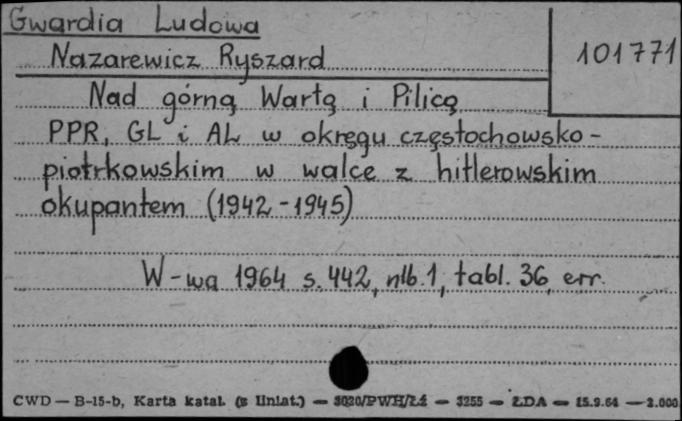 Gwardia Ludowa
101771
Nazarewicz Ryszard
Nad górną Wartą i Pilicą
PPR, GL i AL w okręgu częstochowsko-
piotrkowskim w walce z hitlerowskim
okupantem (1942-1945)
W-wa 1964 s. 442, nlb. 1, tabl. 36, err.
CWD — B-15-b, Karta katal. (z liniat.) — 3020/PWH/Łź — 3255 — ŁDA — 15.9.64 — 2.000